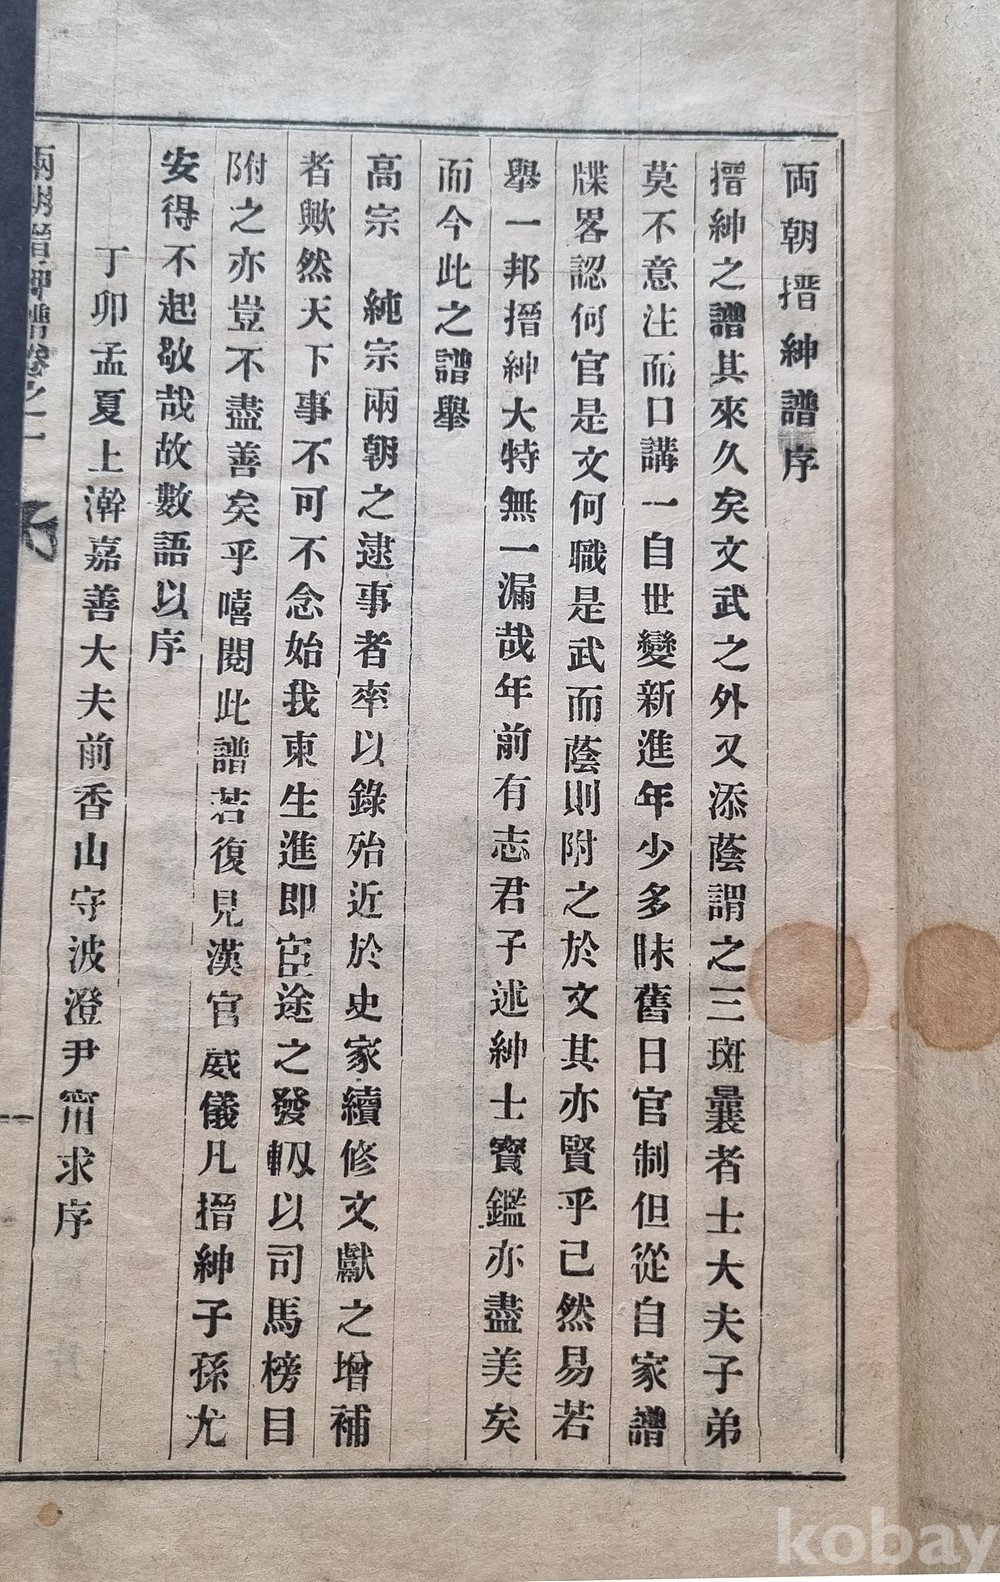 両朝搢紳譜序
搢紳之譜其來久矣文武之外又添蔭謂之三班曩者士大夫子弟
莫不意注而口講一自世變新進年少多昧舊日官制但從自家譜
牒畧認何官是文何職是武而蔭則附之於文其亦賢乎已然易若
擧一邦搢紳大特無一漏哉年前有志君子述紳士寶鑑亦盡美矣
而今此之譜擧
高宗 純宗兩朝之逮事者率以錄殆近於史家續修文獻之增補
者歟然天下事不可不念始我東生進即宦途之發軔以司馬榜目
附之亦豈不盡善矣乎嘻閱此譜若復見漢官威儀凡搢紳子孫尤
安得不起敬哉故數語以序
丁卯孟夏上澣嘉善大夫前香山守波澄尹甯求序
兩朝搢紳譜卷之一
kobay